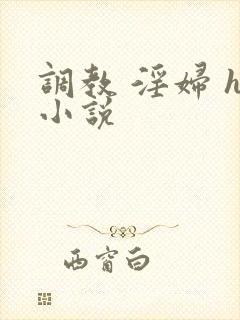 調教 淫婦 h
小説
西窗白